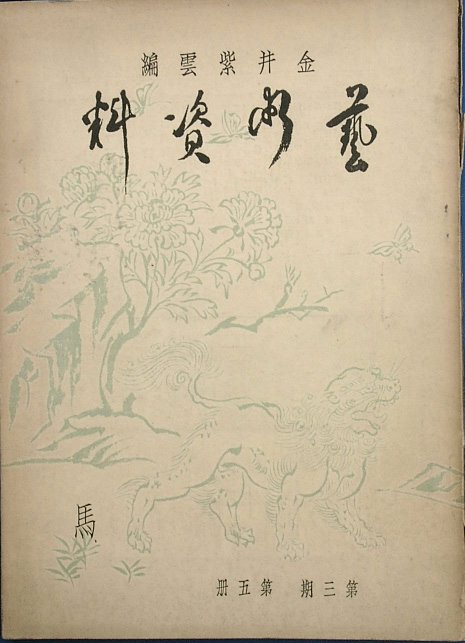 金井紫雲編
藝術資料
馬
第三期 第五册